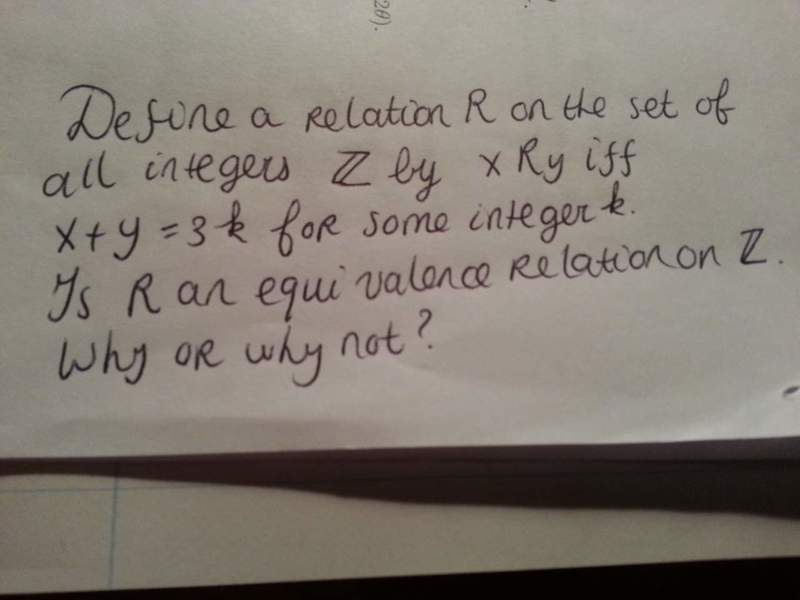 20).
Define a relation R on the set of
all integers ℤ by x R y iff
x + y = 3k for some integer k.
Is R an equivalence relation on ℤ.
Why or why not?